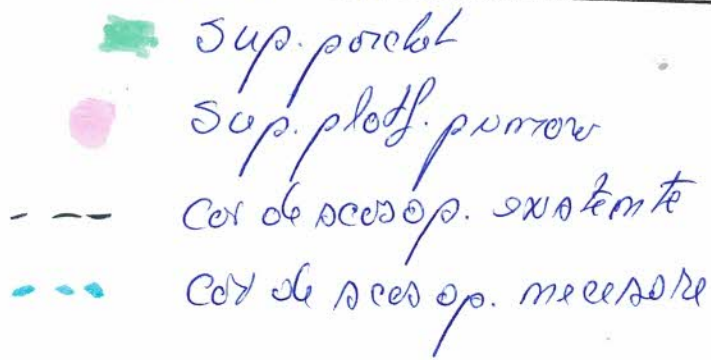 Sup. parchet
Sup. platf. primare
Căi de acces ap. existente
Căi de acces ap. necesare